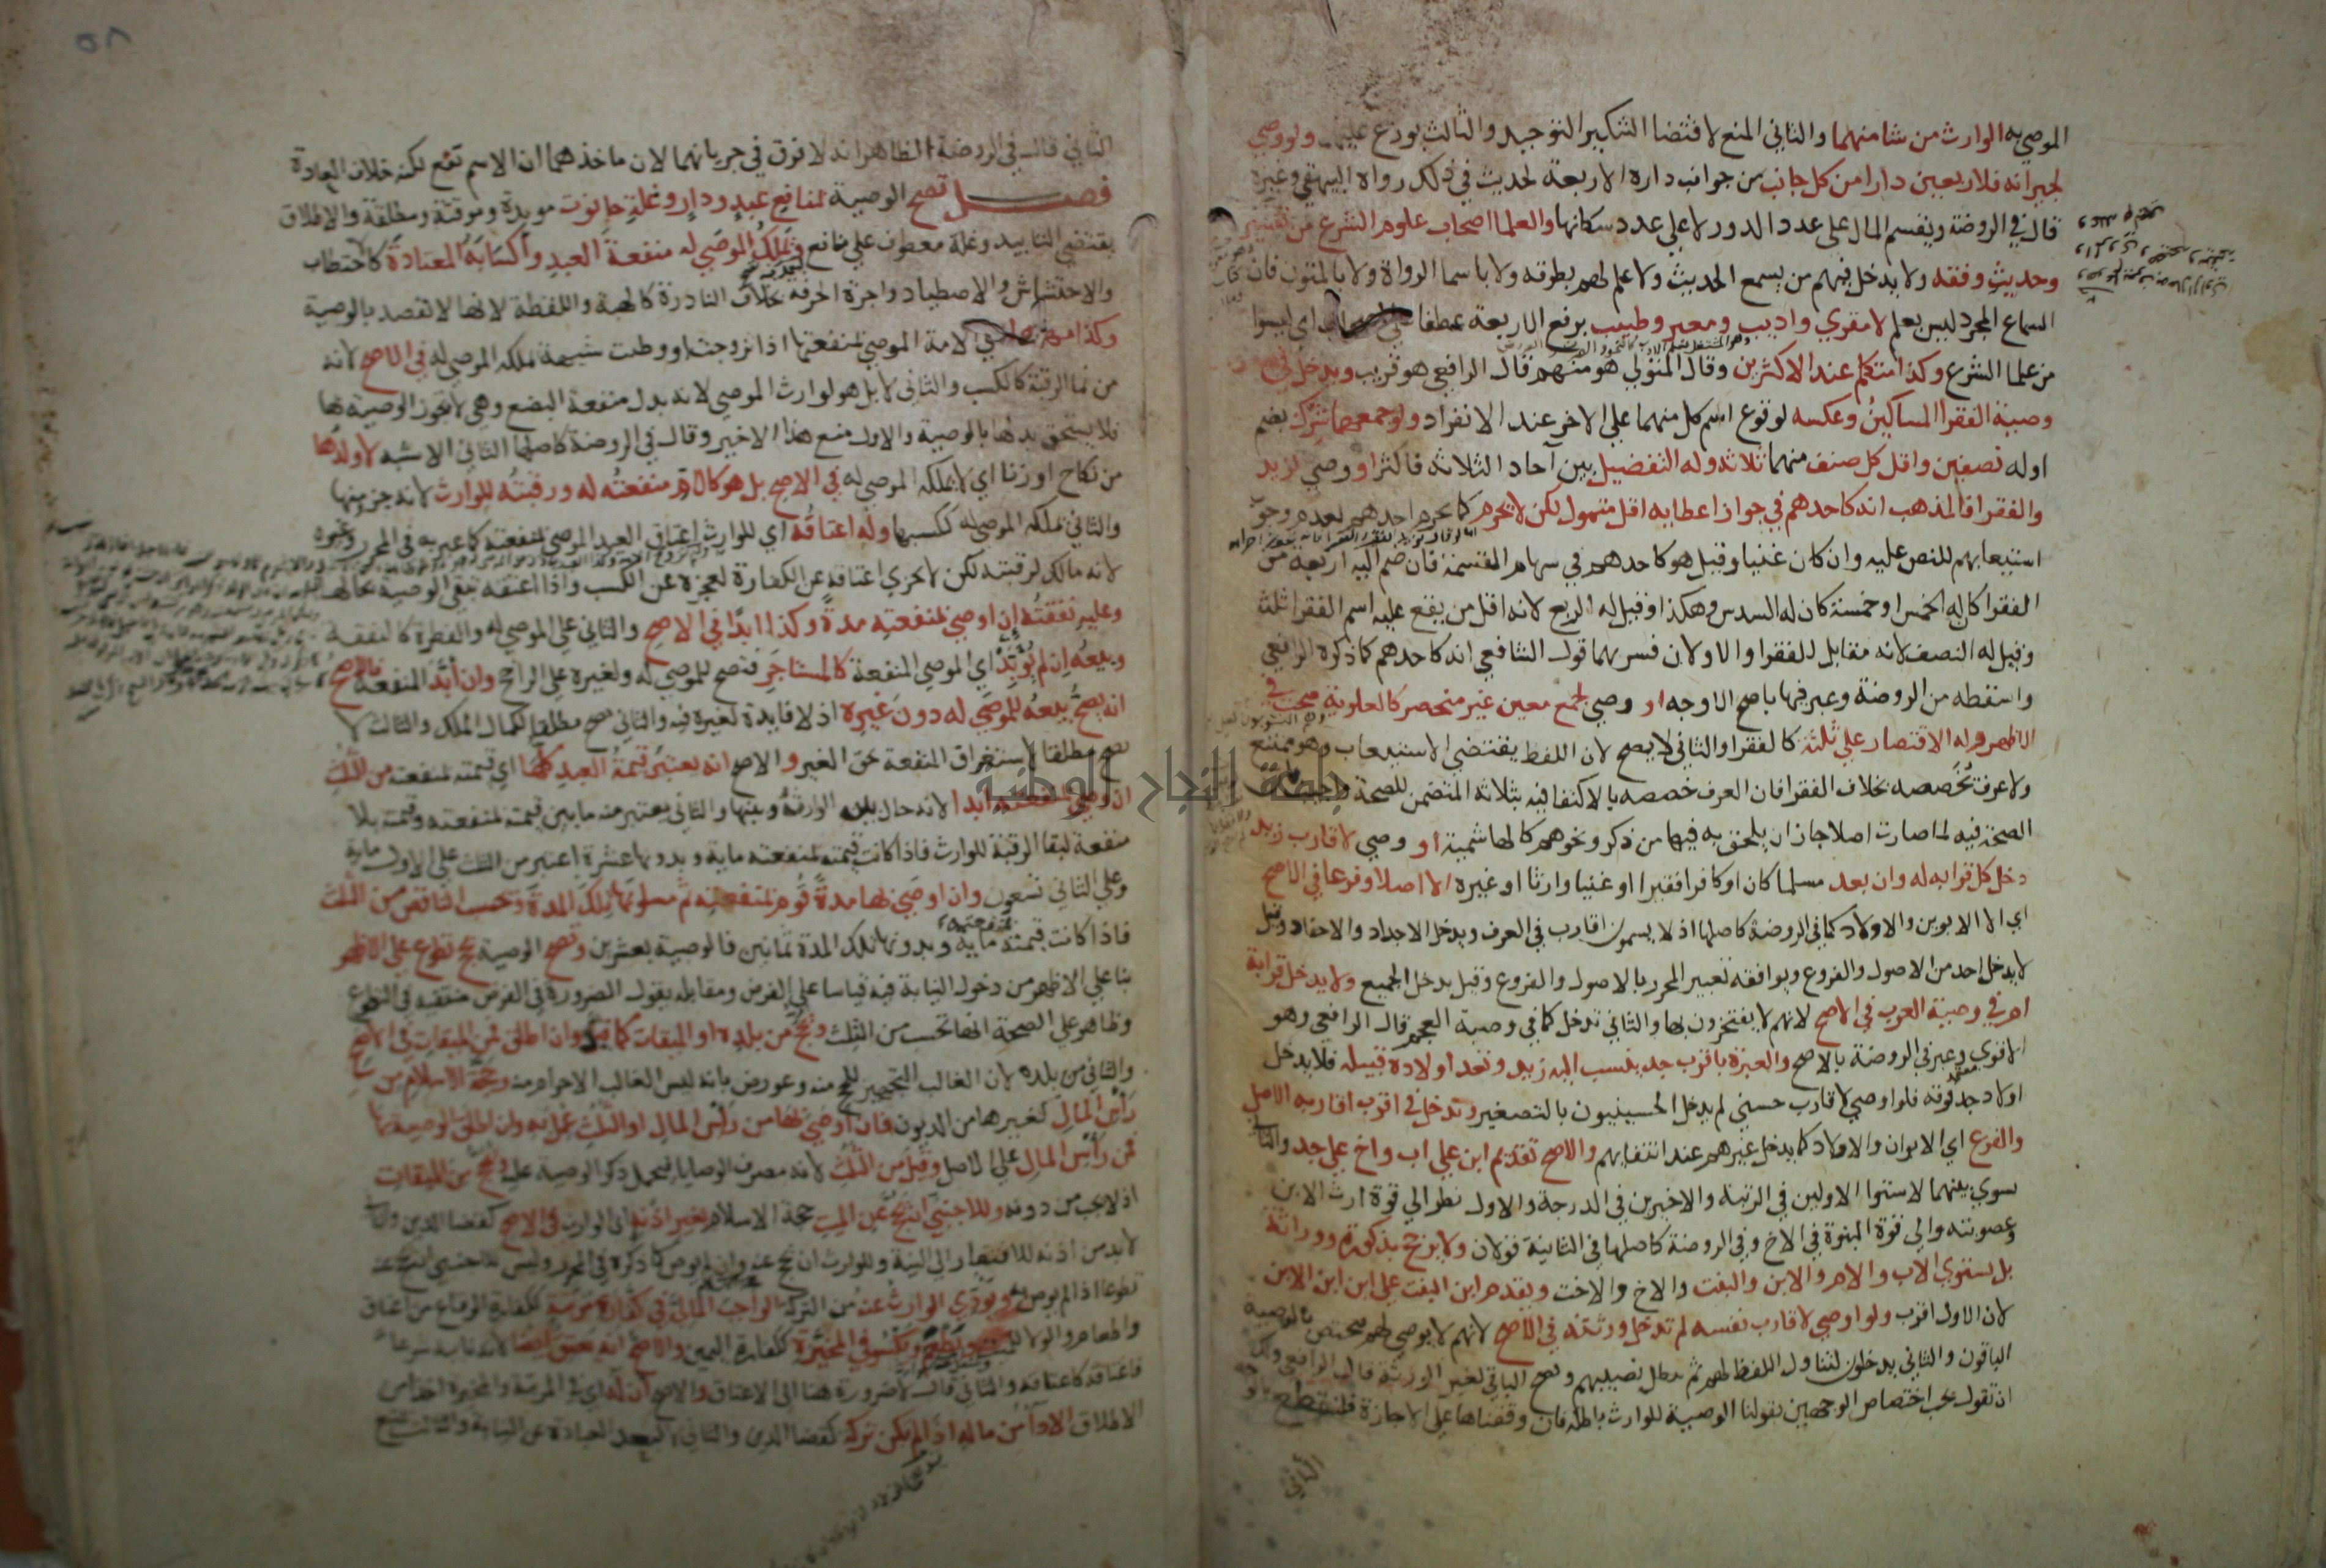 الموصي به الوارث من شا منهما والثاني المنع لاقتضا التنكير التوحيد والثالث يوزع عليهما ولو وصي
لجيرانه فلاربعين دارا من كل جانب من جوانب داره الاربعة لحديث في ذلك رواه البيهقي وغيره
قال في الروضة ويقسم المال علي عدد الدور لا علي عدد سكانها والعلما اصحاب علوم الشرع من تفسير
وحديث وفقه ولا يدخل فيهم من يسمع الحديث ولا علم لهم بطرقه ولا باسما الرواة ولا بالمتون فان
السماع المجرد ليس بعلم لا مقري واديب ومعبر وطبيب برفع الاربعة عطفا علي اصحاب اي ليسوا
من علما الشرع وكذا متكلم عند الاكثرين وقال المتولي هو منهم قال الرافعي هو قريب ويدخل في
وصية الفقرا المساكين وعكسه لوقوع اسم كل منهما علي الاخر عند الانفراد ولو جمعهما شرك بضم
اوله نصفين واقل كل صنف منهما ثلاثة وله التفضيل بين آحاد الثلاثة فاكثر او وصي لزيد
والفقرا فالمذهب انه كاحدهم في جواز اعطايه اقل متمول لكن لا يحرم كما يحرم احدهم لعدم وجوب
استيعابهم للنص عليه وان كان غنيا وقيل هو كاحدهم في سهام القسمة فان ضم اليه اربعة من
الفقرا كان له الخمس او خمسة كان له السدس وهكذا وقيل له الربع لانه اقل من يقع عليه اسم الفقرا ثلثة
وقيل له النصف لانه مقابل للفقرا والاولان فسر بهما قول الشافعي انه كاحدهم كما ذكره الرافعي
واسقطه من الروضة وعبر فيها باصح الاوجه او وصي لجمع معين غير منحصر كالعلوية صحت في
الاظهر وله الاقتصار علي ثلثة كالفقرا والثاني لا يصح لان اللفظ يقتضي الاستيعاب وهو ممتنع
ولا عرف يخصصه بخلاف الفقرا فان العرف خصصه بالاكتفا فيه بثلاثة المتضمن للصحة
الصحة فيه لما صارت اصلا جاز ان يلحق به فيها من ذكر ونحوهم كالهاشمية او وصي لاقارب زيد
دخل كل قرابه له وان بعد مسلما كان او كافرا فقيرا او غنيا وارثا او غيره الا اصلا وفرعا في الاصح
اي الا الابوين والاولاد كما في الروضة كاصلها اذ لا يسمون اقارب في العرف ويدخل الاجداد والاحفاد وقيل
لا يدخل احد من الاصول والفروع ويوافقه تعبير المحرر بالاصول والفروع وقيل يدخل الجميع ولا يدخل قرابة
ام في وصية العرب في الاصح لانهم لا يفتخرون بها والثاني تدخل كما في وصية العجم قال الرافعي وهو
الاقوي وعبر في الروضة بالاصح والعبرة باقرب جد ينسب اليه زيد وتعد اولاده قبيله فلا يدخل
اولاد جد فوقه فلو اوصي لاقارب حسني لم يدخل الحسينيون بالتصغير وتدخل في اقرب اقاربه الاصل
والفرع اي الابوان والاولاد كما يدخل غيرهم عند انتفايهم والاصح تقديم ابن علي اب واخ علي جد والثاني
يسوي بينهما لاستوا الاولين في الرتبة والاخيرين في الدرجة والاول نظر الي قوة ارث الابن
وعصوبته والي قوة البنوة في الاخ وفي الروضة كاصلها في الثانية قولان ولا يرجح بذكورة ووراثة
بل يستوي الاب والام والابن والبنت والاخ والاخت ويقدم ابن البنت علي ابن ابن الابن
لان الاول اقرب ولو اوصي لاقارب نفسه لم تدخل ورثته في الاصح لانهم لا يوصي لهم فيختص بالوصية
الباقون والثاني يدخلون لتناول اللفظ لهم ثم يبطل نصيبهم ويصح الباقي لغير الورثة قال الرافعي ولك
ان تقول يجب اختصاص الوجهين بقولنا الوصية للوارث باطله فان وقفناها علي الاجازة فلنقطع
الثاني
٥٨
الثاني قال في الروضة الظاهر انه لا فرق في جريانهما لان ماخذهما ان الاسم يقع لكنه خلاف العادة
فصل تصح الوصية بمنافع عبد ودار وغلة حانوت موبدة وموقتة ومطلقة والاطلاق
يقتضي التابيد وغلة معطوف علي منافع ويملك الموصي له منفعة العبد واكسابه المعتادة كاحتطاب
والاحتشاش والاصطياد واجرة الحرفة خلاف النادرة كالهبة واللقطة لانها لا تقصد بالوصية
وكذا مهرها اي الامة الموصي بمنفعتها اذا زوجت او وطيت بشبهة يملكه الموصي له في الاصح لانه
من نما الرقبة كالكسب والثاني لا بل هو لوارث الموصي لانه بدل منفعة البضع وهي لا تجوز الوصية بها
فلا يستحق بدلها بالوصية والاول منع هذا الاخير وقال في الروضة كاصلها الثاني الاشبه لا ولدها
من نكاح او زنا اي لا يملكه الموصي له في الاصح بل هو كالام منفعته له ورقبته للوارث لانه جزو منها
والثاني يملكه الموصي له ككسبها وله اعتاقه اي للوارث اعتاق العبد الموصي بمنفعته كما عبر به في المحرر وغيره
لانه مالك لرقبته لكن لا يجزي اعتاقه عن الكفارة لعجزه عن الكسب واذا اعتقه تبقي الوصية بحالها
وعليه نفقته ان اوصي بمنفعته مدة وكذا ابدا في الاصح والثاني علي الموصي له والفطرة كالنفقة
وبيعه ان لم يوبد اي الموصي المنفعة كالمستاجر فتصح للموصي له ولغيره علي الراجح وان ابد المنفعة فالاصح
انه يصح بيعه للموصي له دون غيره اذ لا فايدة لغيره فيه والثاني يصح مطلقا لكمال الملك والثالث لا
يصح مطلقا لاستغراق المنفعة بحق الغير والاصح انه يعتبر قيمة العبد كلها اي قيمته بمنفعته من الثلث
ان وصي بمنفعته ابدا لانه حال بين الوارث وبينها والثاني يعتبر منه ما بين قيمته بمنفعته وقيمته بلا
منفعة لبقا الرقبة للوارث فاذا كانت قيمته بمنفعته ماية وبدونها عشرة اعتبر من الثلث علي الاول ماية
وعلي الثاني تسعون وان اوصي بها مدة قوم بمنفعته ثم مسلوبها تلك المدة وتحسب الناقص من الثلث
فاذا كانت قيمته بمنفعته ماية وبدونها تلك المدة ثمانين فالوصية بعشرين وتصح الوصية بحج تطوع علي الاظهر
بنا علي الاظهر من دخول النيابة فيه قياسا علي الفرض ومقابله يقول الضرورة في الفرض منتفية في التطوع
وظاهر علي الصحة انها تحسب من الثلث ويحج من بلده او الميقات كما قيد وان اطلق فمن الميقات في الاصح
والثاني من بلده لان الغالب التجهيز للحج منه وعورض بانه ليس الغالب الاحرام منه وحجة الاسلام من
راس المال كغيرها من الديون فان اوصي بها من راس المال او الثلث عمل به وان اطلق الوصية بها
فمن راس المال علي الاصل وقيل من الثلث لانه مصرف الوصايا فيحمل ذكر الوصية عليه ويحج من الميقات
اذ لا يجب من دونه وللاجنبي ان يحج عن الميت حجة الاسلام بغير اذنه اي الوارث في الاصح كقضا الدين والثاني
لا بد من اذنه للافتقار الي النية وللوارث ان يحج عنه وان لم يوص كما ذكره في المحرر وليس للاجنبي ان يحج عنه
تطوعا اذا لم يوص به ويودي الوارث عنه من التركة الواجب المالي في كفارة مرتبة ككفارة الوقاع من اعتاق
واطعام والولا للميت ويطعم ويكسو في المخيرة ككفارة اليمين والاصح انه يعتق ايضا لانه نايبه شرعا
فاعتاقه كاعتاقه والثاني قال لا ضرورة هنا الي الاعتاق والاصح ان له اي في المرتبة والمخيرة
الاطلاق الادا من ماله اذا لم يكن تركة كقضا الدين والثاني لا لبعد العبادة عن النيابة والثالث يمنع
جامعة النجاح الوطنية